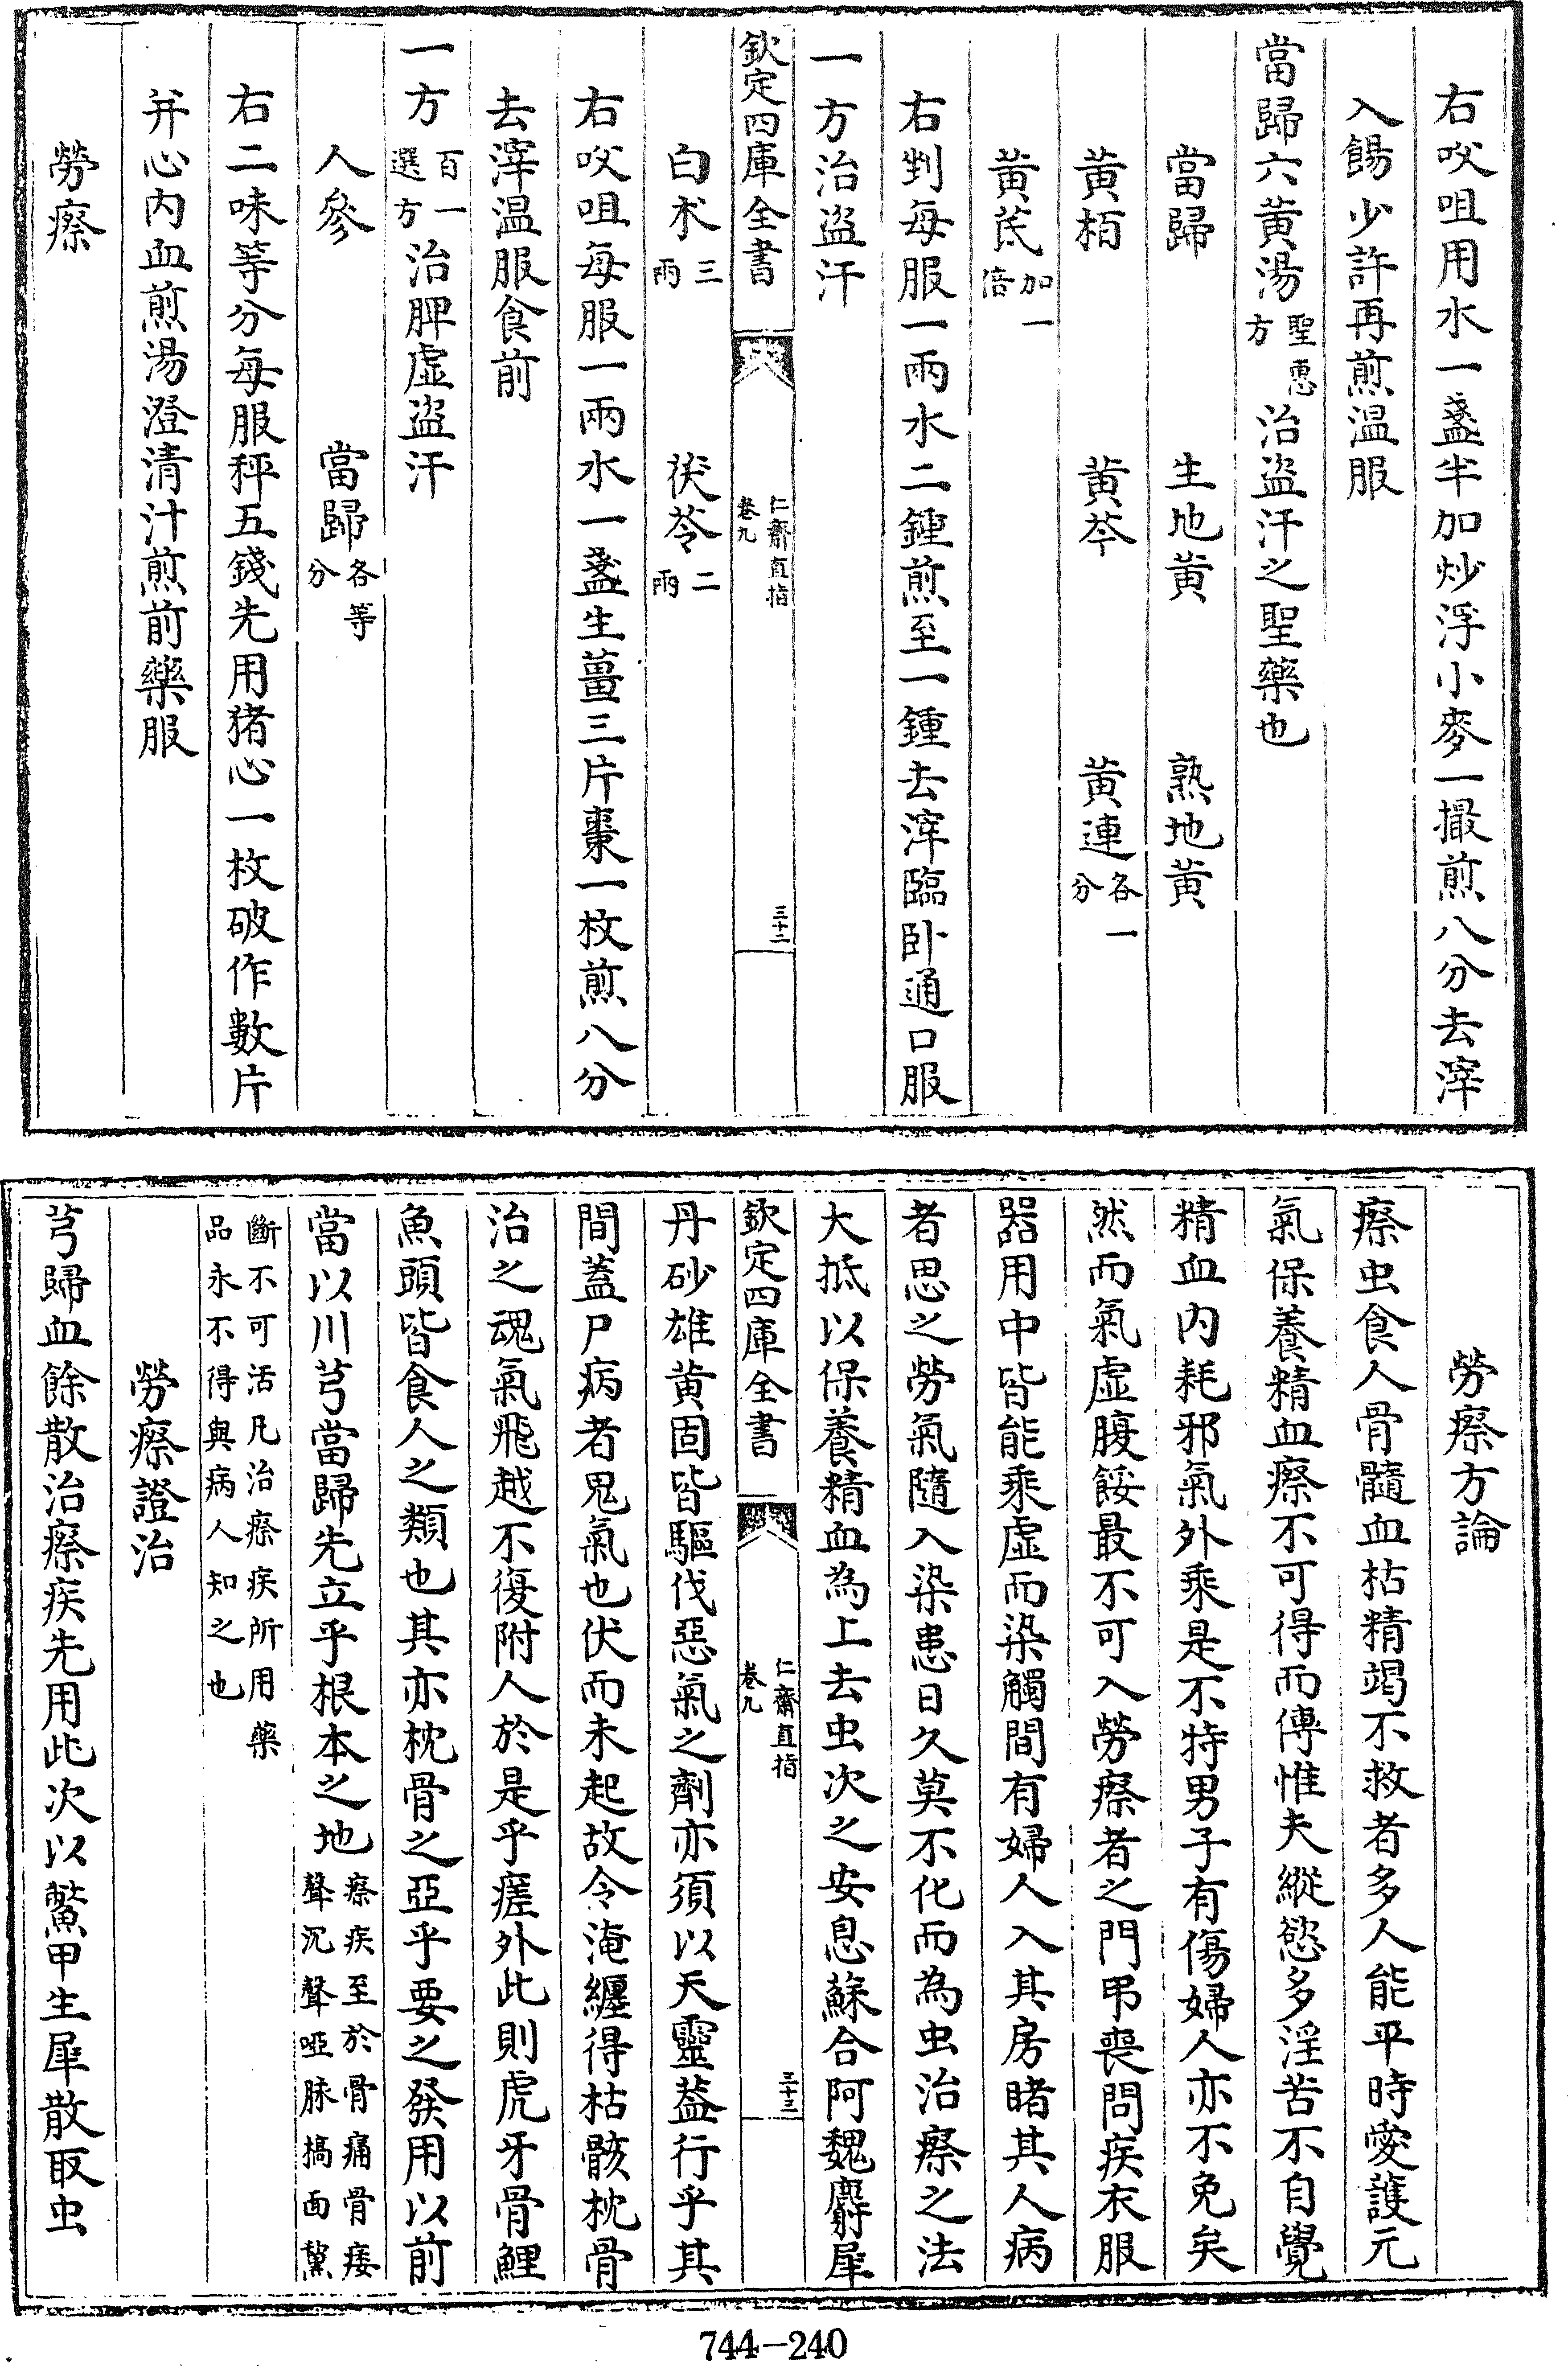 右㕮咀用水一盞半加炒浮小麥一撮煎八分去滓
入餳少許再煎温服
當歸六黄湯聖惠方治盗汗之聖藥也
當歸 生地黄 熟地黄
黄栢 黄芩 黄連各一分
黄芪加一倍
右剉每服一兩水二鍾煎至一鍾去滓臨卧通口服
一方治盗汗
欽定四庫全書 仁齋直指卷九 三十二
白朮三兩 茯苓二兩
右㕮咀每服一兩水一盞生薑三片棗一枚煎八分
去滓温服食前
一方百一選方治脾虚盗汗
人參 當歸各等分
右二味等分每服秤五錢先用猪心一枚破作數片
并心内血煎湯澄清汁煎前藥服
勞瘵
勞瘵方論
瘵虫食人骨髓血枯精竭不救者多人能平時愛護元
氣保養精血瘵不可得而傳惟夫縱慾多淫苦不自覺
精血内耗邪氣外乘是不特男子有傷婦人亦不免矣
然而氣虚腹餒最不可入勞瘵者之門弔喪問疾衣服
器用中皆能乘虚而染觸間有婦人入其房睹其人病
者思之勞氣隨入染患日久莫不化而為虫治瘵之法
大抵以保養精血為上去虫次之安息蘇合阿魏麝犀
欽定四庫全書 仁齋直指卷九 三十三
丹砂雄黄固皆驅伐惡氣之劑亦須以天靈葢行乎其
間蓋尸病者鬼氣也伏而未起故令淹纏得枯骸枕骨
治之魂氣飛越不復附人於是乎瘥外此則虎牙骨鯉
魚頭皆食人之類也其亦枕骨之亞乎要之發用以前
當以川芎當歸先立乎根本之地瘵疾至於骨痛骨痿聲沉聲啞脉槁面黧
斷不可活凡治瘵疾所用藥品永不得與病人知之也
勞瘵證治
芎歸血餘散治瘵疾先用此次以鱉甲生犀散取虫
744-240